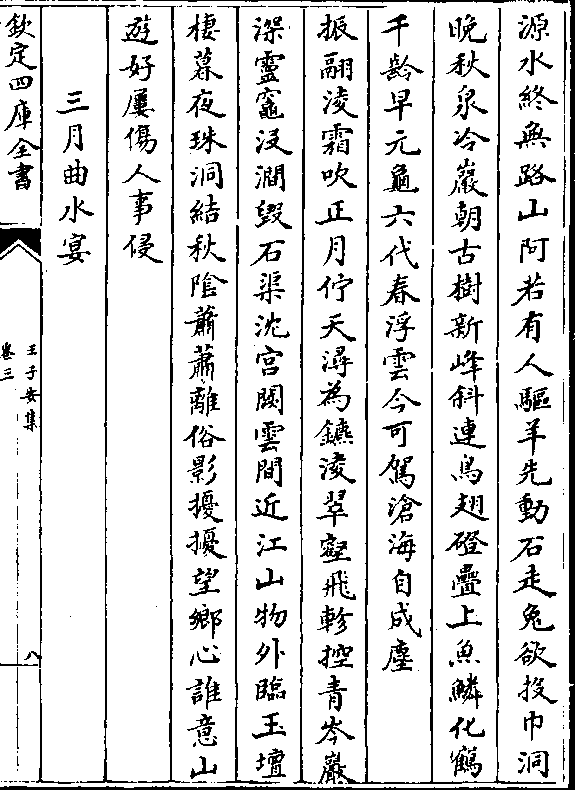 源水終無路山阿若有人驅羊先動石走兔欲投巾洞
晚秋泉冷巖朝古樹新峰斜連鳥翅磴疊上魚鱗化鶴
千齡早元龜六代春浮雲今可駕滄海自成塵
振翮淩霜吹正月佇天潯為鑣淩翠壑飛軫控青岑巖
深靈竈沒澗毀石渠沈宮闕雲間近江山物外臨玉壇
棲暮夜珠洞結秋陰蕭蕭離俗影擾擾望鄉心誰意山
遊好屢傷人事侵
三月曲水宴
欽定四庫全書
王子安集
卷三
八